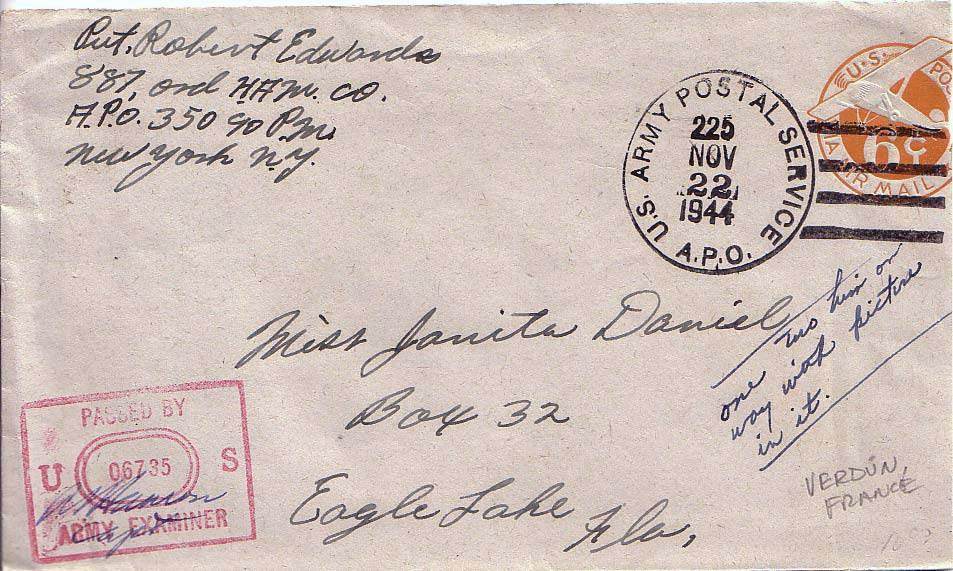 Pvt. Robert Edwards
887, ord H.A.M. co.
A.P.O. 350 c/o P.M.
New York N.Y.
U.S. ARMY POSTAL SERVICE
225
NOV
22
1944
A.P.O.
U.S. POS
6¢
VIA AIR MAIL
Miss Janita Daniel
Box 32
Eagle Lake
Fla,
him on
one way with picture
in it.
VERDUN,
FRANCE
PASSED BY
U 06735 S
ARMY EXAMINER
Capt